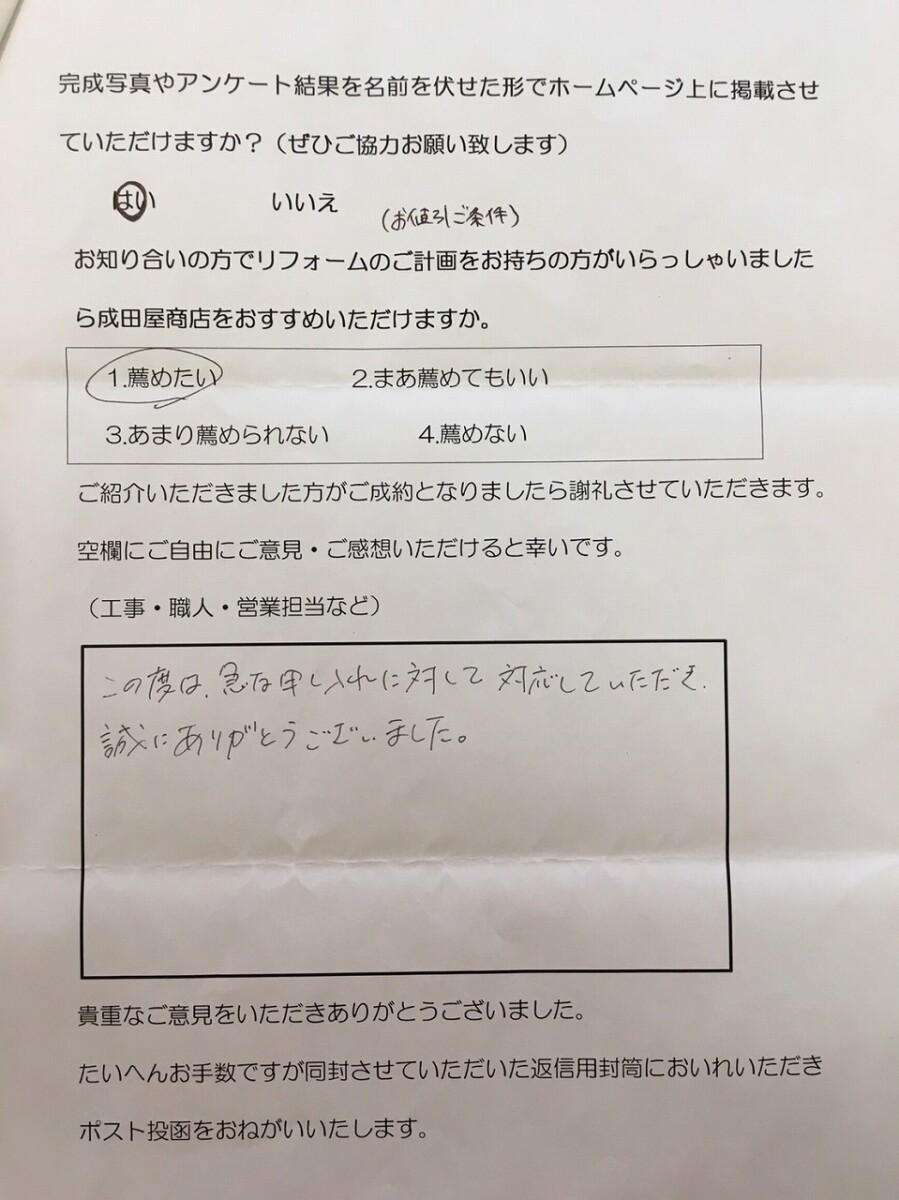 完成写真やアンケート結果を名前を伏せた形でホームページ上に掲載させ
ていただけますか？（ぜひご協力お願い致します）
はい　いいえ
(お値引ご条件)
お知り合いの方でリフォームのご計画をお持ちの方がいらっしゃいました
ら成田屋商店をおすすめいただけますか。
1.薦めたい　2.まあ薦めてもいい
3.あまり薦められない　4.薦めない
ご紹介いただきました方がご成約となりましたら謝礼させていただきます。
空欄にご自由にご意見・ご感想いただけると幸いです。
（工事・職人・営業担当など）
この度は、急な申し入れに対して対応していただき、
誠にありがとうございました。
貴重なご意見をいただきありがとうございました。
たいへんお手数ですが同封させていただいた返信用封筒においれいただき
ポスト投函をおねがいいたします。